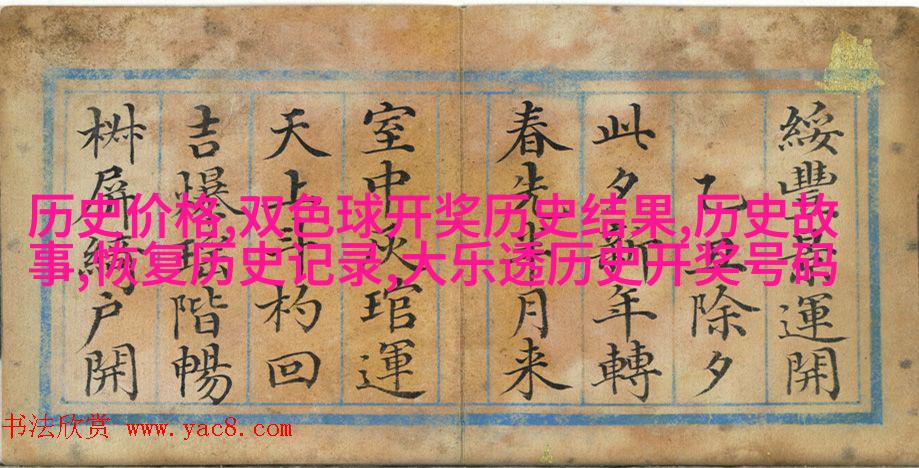 綏豐運開
乙丑除夕
此夕新年轉
春先半月来
室中灰琯運
天上斗杓回
吉爆階暢
椒屏戶開
历史价格,双色球开奖历史结果,历史故
事,恢复历史记录,大乐透历史开奖号码
书法欣赏 www.yac8.com